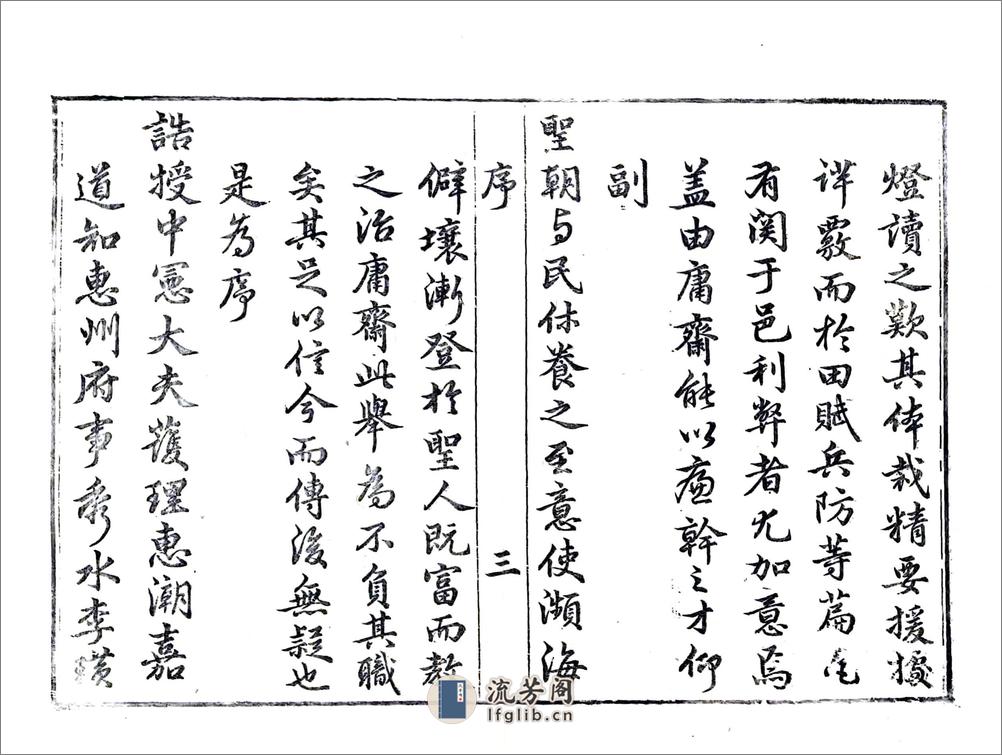 燈讀之歎其体裁精要援據
详覈而於田賦兵防等篇凡
有関于邑利弊者尤加意焉
盖由庸齋能以廉幹之才仰
副
聖朝与民休養之至意使瀕海
序
三
僻壤漸登於聖人既富而教
之治庸齋此舉為不負其職
矣其足以信今而傳後無疑也
是為序
誥授中憲大夫護理惠潮嘉
道知惠州府事秀水李璜
流芳阁
lfglib.cn